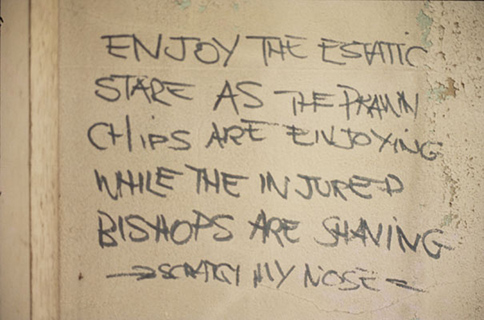 ENJOY THE ESTATIC
STARE AS THE PRAWN
CHIPS ARE ENJOYING
WHILE THE INJURED
BISHOPS ARE SHAVING
SCRATCH MY NOSE